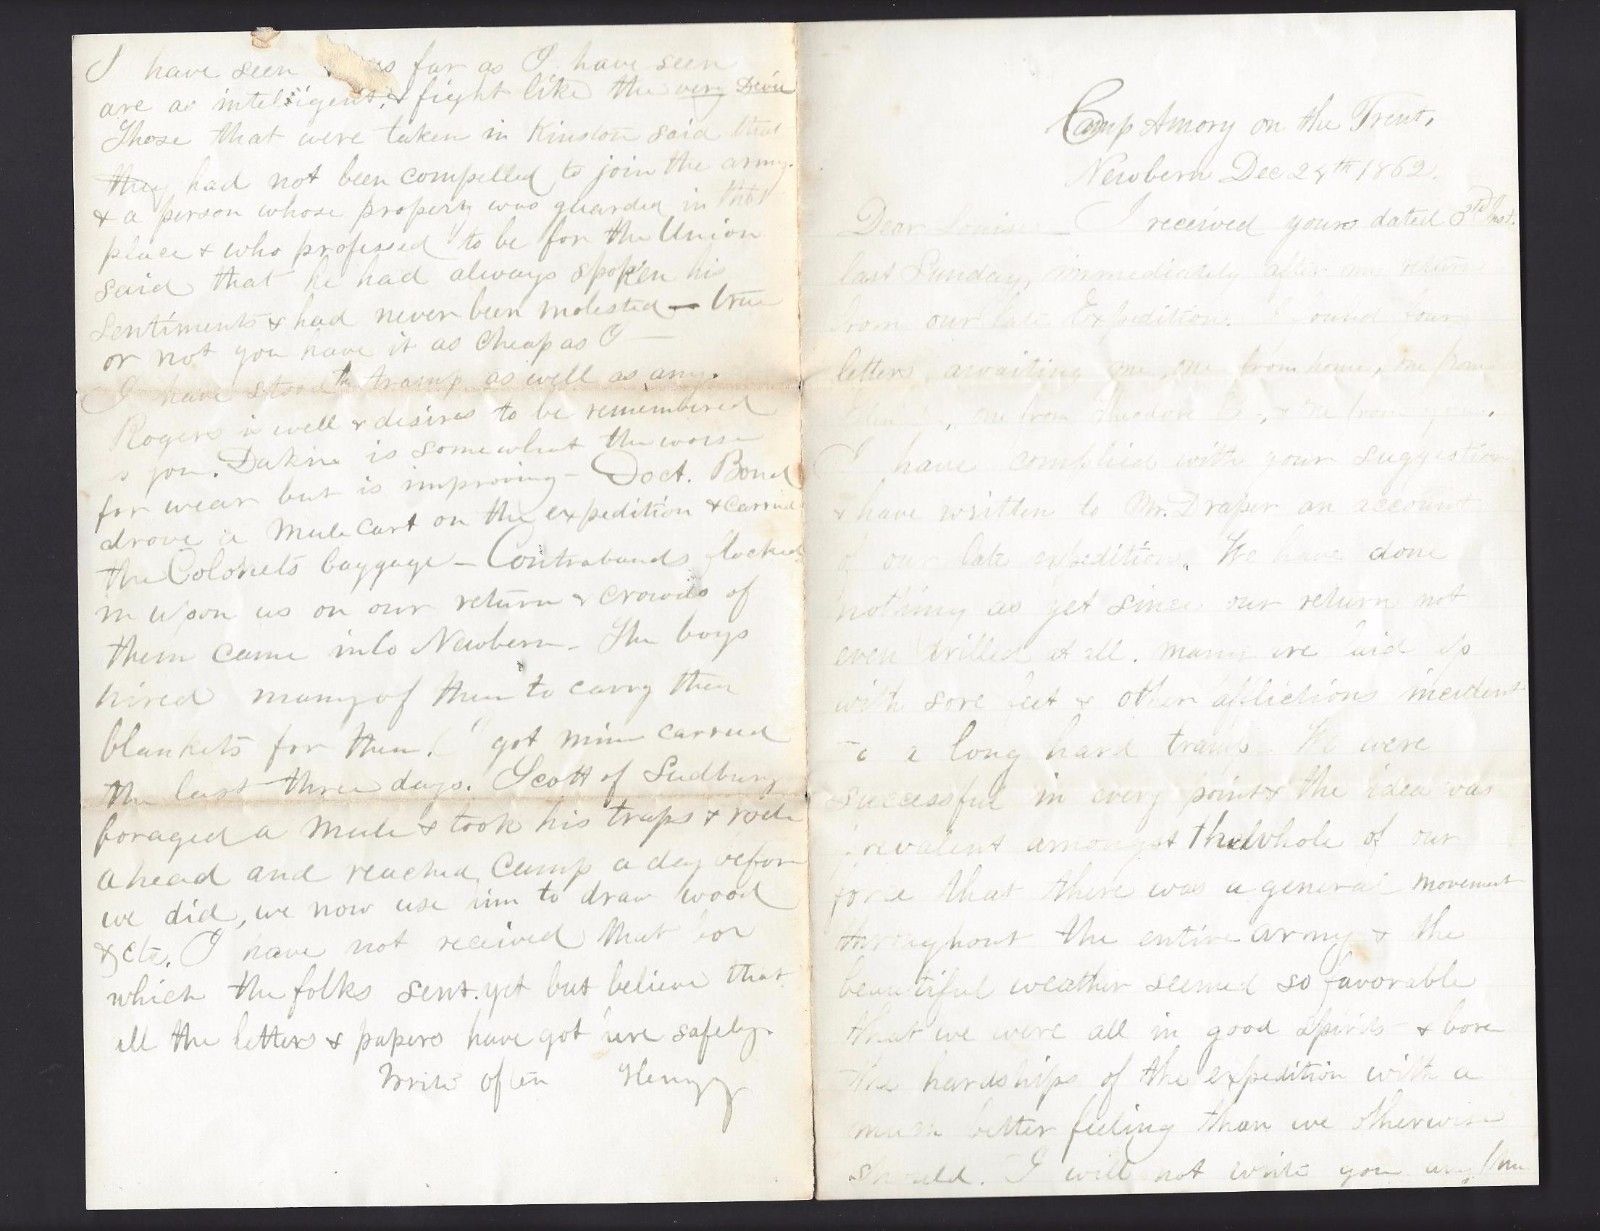 Camp Amory on the Trent,
Newbern Dec 28th 1862.
Dear Louise — I received yours dated 3rd Inst.
last Sunday, immediately after our return
from our late Expedition. I found four
letters awaiting me, one from home, one from
one from Theodore & one from you.
I have complied with your suggestion
& have written to Mr. Draper an account
of our late expedition. We have done
nothing as yet since our return not
even drilled at all. Many are laid up
with sore feet & other aflictions incident
to a long hard tramp. We were
successful in every point & the idea was
prevalent amongst the whole of our
force that there was a general movement
throughout the entire army & the
beautiful weather seemed so favorable
that we were all in good spirits & bore
the hardships of the expedition with a
much better feeling than we otherwise
should. I will not write you any
I have seen far as I have seen
are as intelligent, & fight like the very Devil
Those that were taken in Kinston said that
they had not been compelled to join the army.
& a person whose property was guarded in that
place & who professed to be for the Union
said that he had always spoken his
sentiments & had never been molested — true
or not you have it as cheap as I —
I have stood the tramp as well as any.
Rogers is well & desires to be remembered
to you. Dakin is somewhat the worse
for wear but is improving — Doct. Bond
drove a Mule cart on the expedition & carried
the Colonels baggage — Contrabands flocked
in upon us on our return & crowds of
them came into Newbern — The boys
hired many of them to carry their
blankets for them. I got mine carried
the last three days. Scott of Sudbury
foraged a Mule & took his traps & rode
ahead and reached Camp a day before
we did, we now use him to draw wood
& etc. I have not received that box
which the folks sent yet but believe that
all the letters & papers have got here safely.
Write often Henry